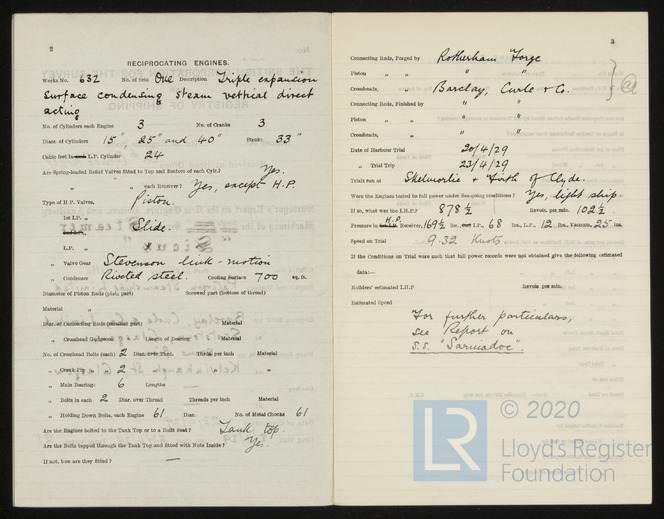 2
RECIPROCATING ENGINES.
Works No. 632 No. of Sets One Description Triple expansion
surface condensing steam vertical direct
acting
No. of Cylinders each Engine 3 No. of Cranks 3
Diars. of Cylinders 15", 25" and 40" Stroke 33"
Cubic feet in each L.P. Cylinder 24
Are Spring-loaded Relief Valves fitted to Top and Bottom of each Cylr.? Yes.
" " each Receiver? Yes, except H.P.
Type of H.P. Valves, Piston.
1st I.P. "
Slide.
L.P. "
" Valve Gear Stevenson link-motion
" Condenser Riveted steel. Cooling Surface 700 sq. ft.
Diameter of Piston Rods (plain part) Screwed part (bottom of thread)
Material "
Diar. of Connecting Rods (smallest part) Material
" Crosshead Gudgeons Length of Bearing Material
No. of Crosshead Bolts (each) 2 Diar. over Thrd. Thrds. per inch Material
" Crank Pin " 2 " " "
" Main Bearings 6 Lengths
" Bolts in each 2 Diar. over Thread Threads per inch Material
" Holding Down Bolts, each Engine 61 Diar. No. of Metal Chocks 61
Are the Engines bolted to the Tank Top or to a Built Seat? Tank top.
Are the Bolts tapped through the Tank Top and fitted with Nuts Inside? Yes.
If not, how are they fitted? —
3
Connecting Rods, Forged by Rotherham Forge
Piston " " " "
Crossheads, " Barclay, Curle & Co.
Connecting Rods, Finished by " "
Piston " " " "
Crossheads, " " "
Date of Harbour Trial 20/4/29
" Trial Trip 23/4/29
Trials run at Skelmorlie Firth of Clyde.
Were the Engines tested to full power under Sea-going conditions? Yes, light ship.
If so, what was the I.H.P.? 878½ Revols. per min. 102½
Pressure in H.P. Receiver, 169½ lbs., I.P., 68 lbs., L.P., 12 lbs., Vacuum, 25 ins.
Speed on Trial 9.32 Knots
If the Conditions on Trial were such that full power records were not obtained give the following estimated
data:—
Builders' estimated I.H.P. Revols per min.
Estimated Speed
For further particulars,
see Report on
S.S. "Sarniadoc".
LR
© 2020
Lloyd's Register
Foundation